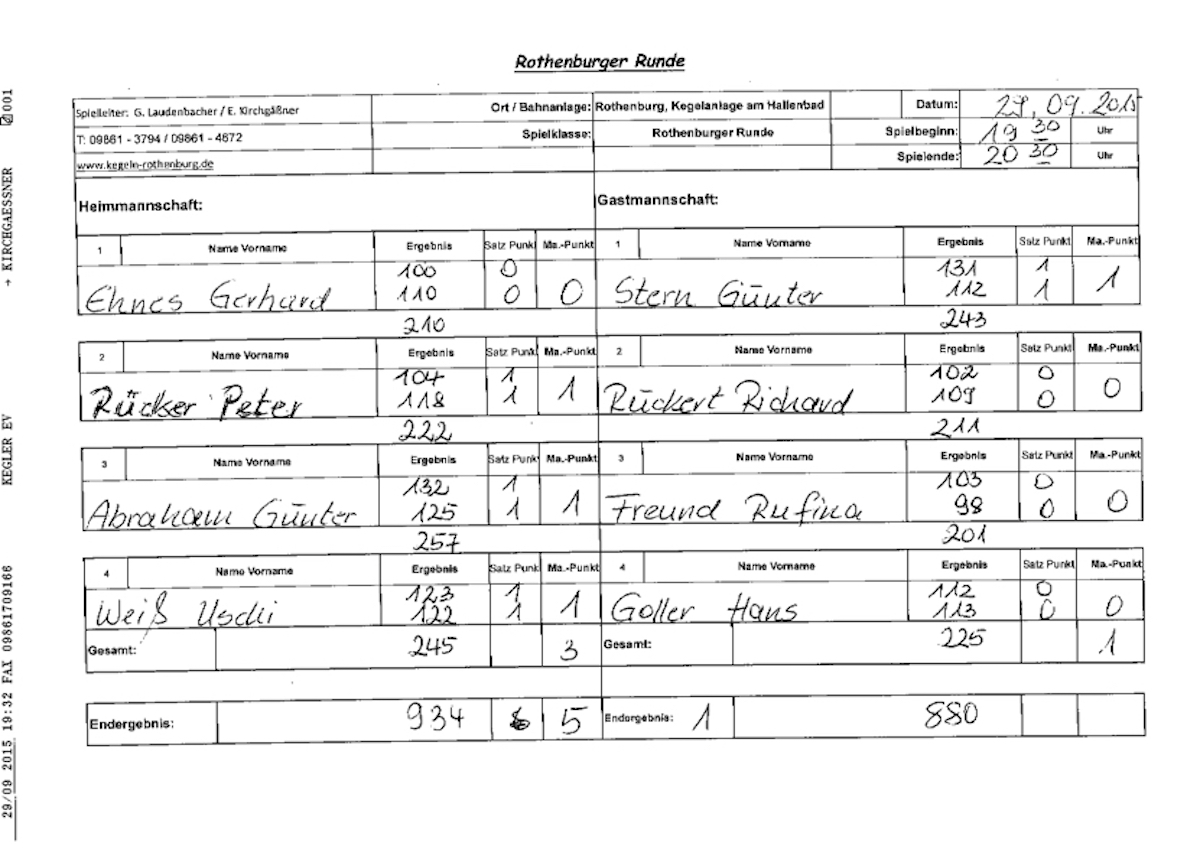 Rothenburger Runde
Spielleiter: G. Laudenbacher / E. Kirchgäßner Ort / Bahnanlage: Rothenburg, Kegelanlage am Hallenbad Datum: 29.09.2015
T: 09861 - 3794 / 09861 - 4672 Spielklasse: Rothenburger Runde Spielbeginn: 19 30 Uhr
www.kegeln-rothenburg.de Spielende: 20 30 Uhr
Heimmannschaft: Gastmannschaft:
1 Name Vorname Ergebnis Satz Punkt Ma.-Punkt 1 Name Vorname Ergebnis Satz Punkt Ma.-Punkt
100 0 131 1
Ehnes Gerhard 110 0 0 Stern Günter 112 1 1
210 243
2 Name Vorname Ergebnis Satz Punkt Ma.-Punkt 2 Name Vorname Ergebnis Satz Punkt Ma.-Punkt
104 1 102 0
Rücker Peter 118 1 1 Rückert Richard 109 0 0
222 211
3 Name Vorname Ergebnis Satz Punkt Ma.-Punkt 3 Name Vorname Ergebnis Satz Punkt Ma.-Punkt
132 1 103 0
Abraham Günter 125 1 1 Freund Rufina 98 0 0
257 201
4 Name Vorname Ergebnis Satz Punkt Ma.-Punkt 4 Name Vorname Ergebnis Satz Punkt Ma.-Punkt
123 1 112 0
Weiß Uschi 122 1 1 Goller Hans 113 0 0
Gesamt: 245 3 Gesamt: 225 1
Endergebnis: 934 5 Endergebnis: 1 880
29/09 2015 19:32 FAX 09861709166 KEGLER EV → KIRCHGAESSNER 001